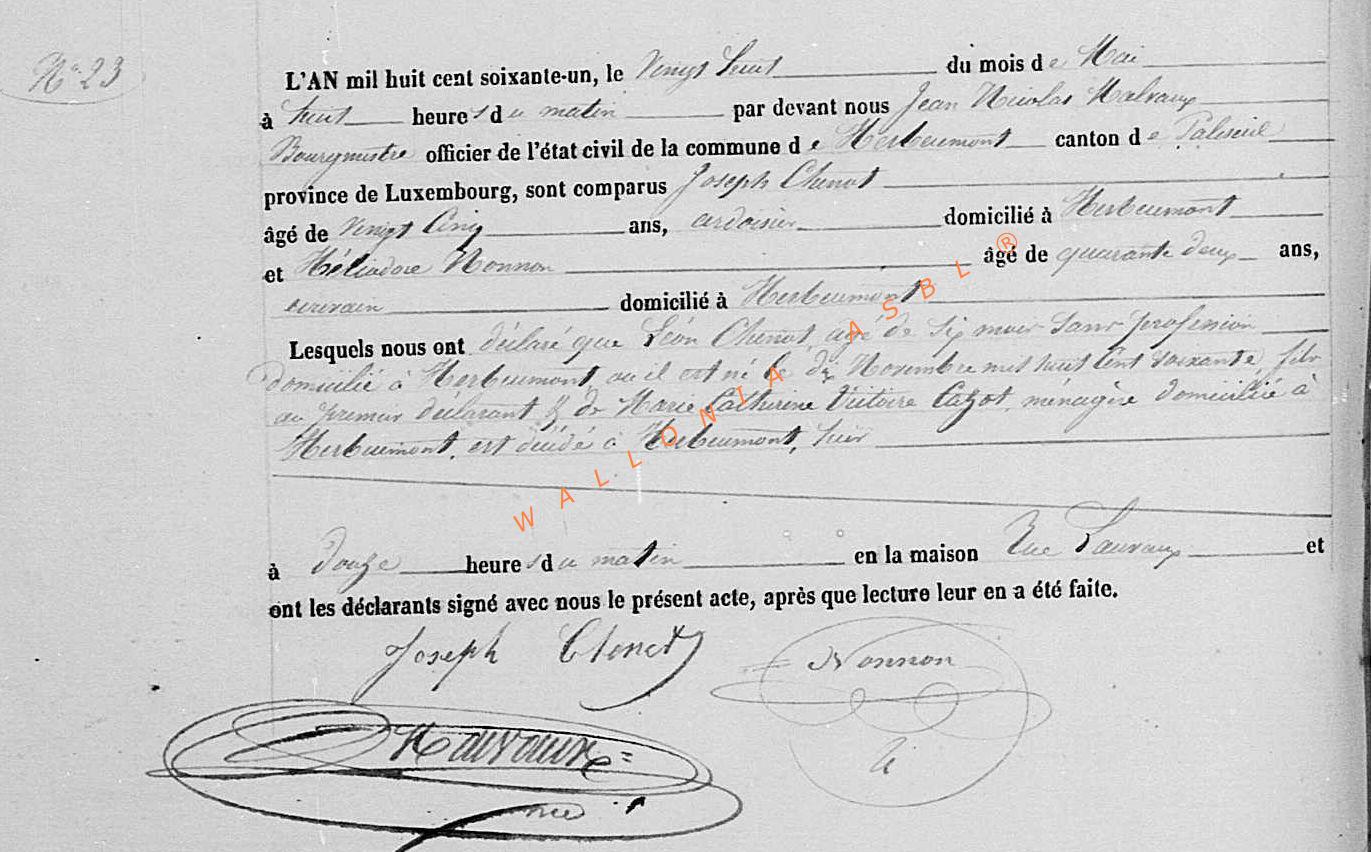 N° 23
L'AN mil huit cent soixante-un, le Vingt huit du mois de Mai
à huit heures du matin par devant nous Jean Nicolas Malvaux
Bourgmestre officier de l'état civil de la commune de Herbeumont canton de Paliseul
province de Luxembourg, sont comparus Joseph Chenot
âgé de Vingt Cinq ans, ardoisier domicilié à Herbeumont
et Héliodore Nonnon âgé de quarante deux ans,
écrivain domicilié à Herbeumont
Lesquels nous ont déclaré que Léon Chenot, agé de six mois sans profession
domicilié à Herbeumont, ou il est né le dix Novembre mil huit cent soixante, fils
au premier déclarant & de Marie Catherine Victoire Cazot, ménagère domiciliée à
Herbeumont, est décédé à Herbeumont, hier
à douze heures du matin en la maison Rue Lauvaux et
ont les déclarants signé avec nous le présent acte, après que lecture leur en a été faite.
Joseph Chenot
Nonnon
Malvaux
WALLONIA ASBL ®